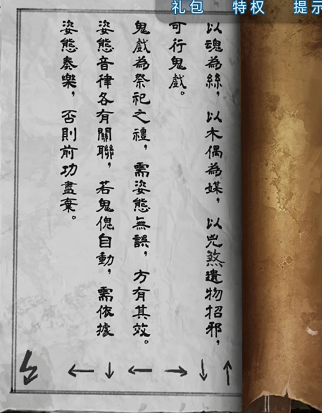 礼包 特权 提示
以魂為絲，以木偶為媒，以兇煞遺物招邪，
可行鬼戲。
鬼戲為祭祀之禮，需姿態無誤，方有其效。
姿態音律各有關聯，若鬼傀自動，需依據
姿態奏樂，否則前功盡棄。